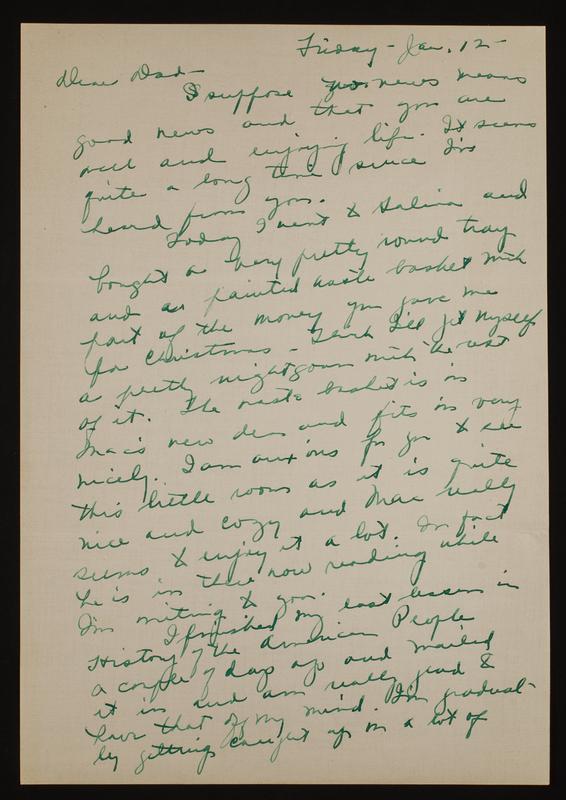 Friday - Jan. 12 -
Dear Dad -
I suppose no news means
good news and that you are
well and enjoying life. It seems
quite a long time since I've
heard from you.
Today I went to Salina and
bought a very pretty round tray
and a painted waste basket with
part of the money you gave me
for Christmas - Think I'll get myself
a pretty nightgown with the rest
of it. The waste basket is in
Mac's new den and fits in very
nicely. I am anxious for you to see
this little room as it is quite
nice and cozy and Mac really
seems to enjoy it a lot. In fact
he is in there now reading while
I'm writing to you.
I finished my last lesson in
History of the American People
a couple of days ago and mailed
it in and am really glad to
have that off my mind. I'm gradual-
ly getting caught up on a lot of